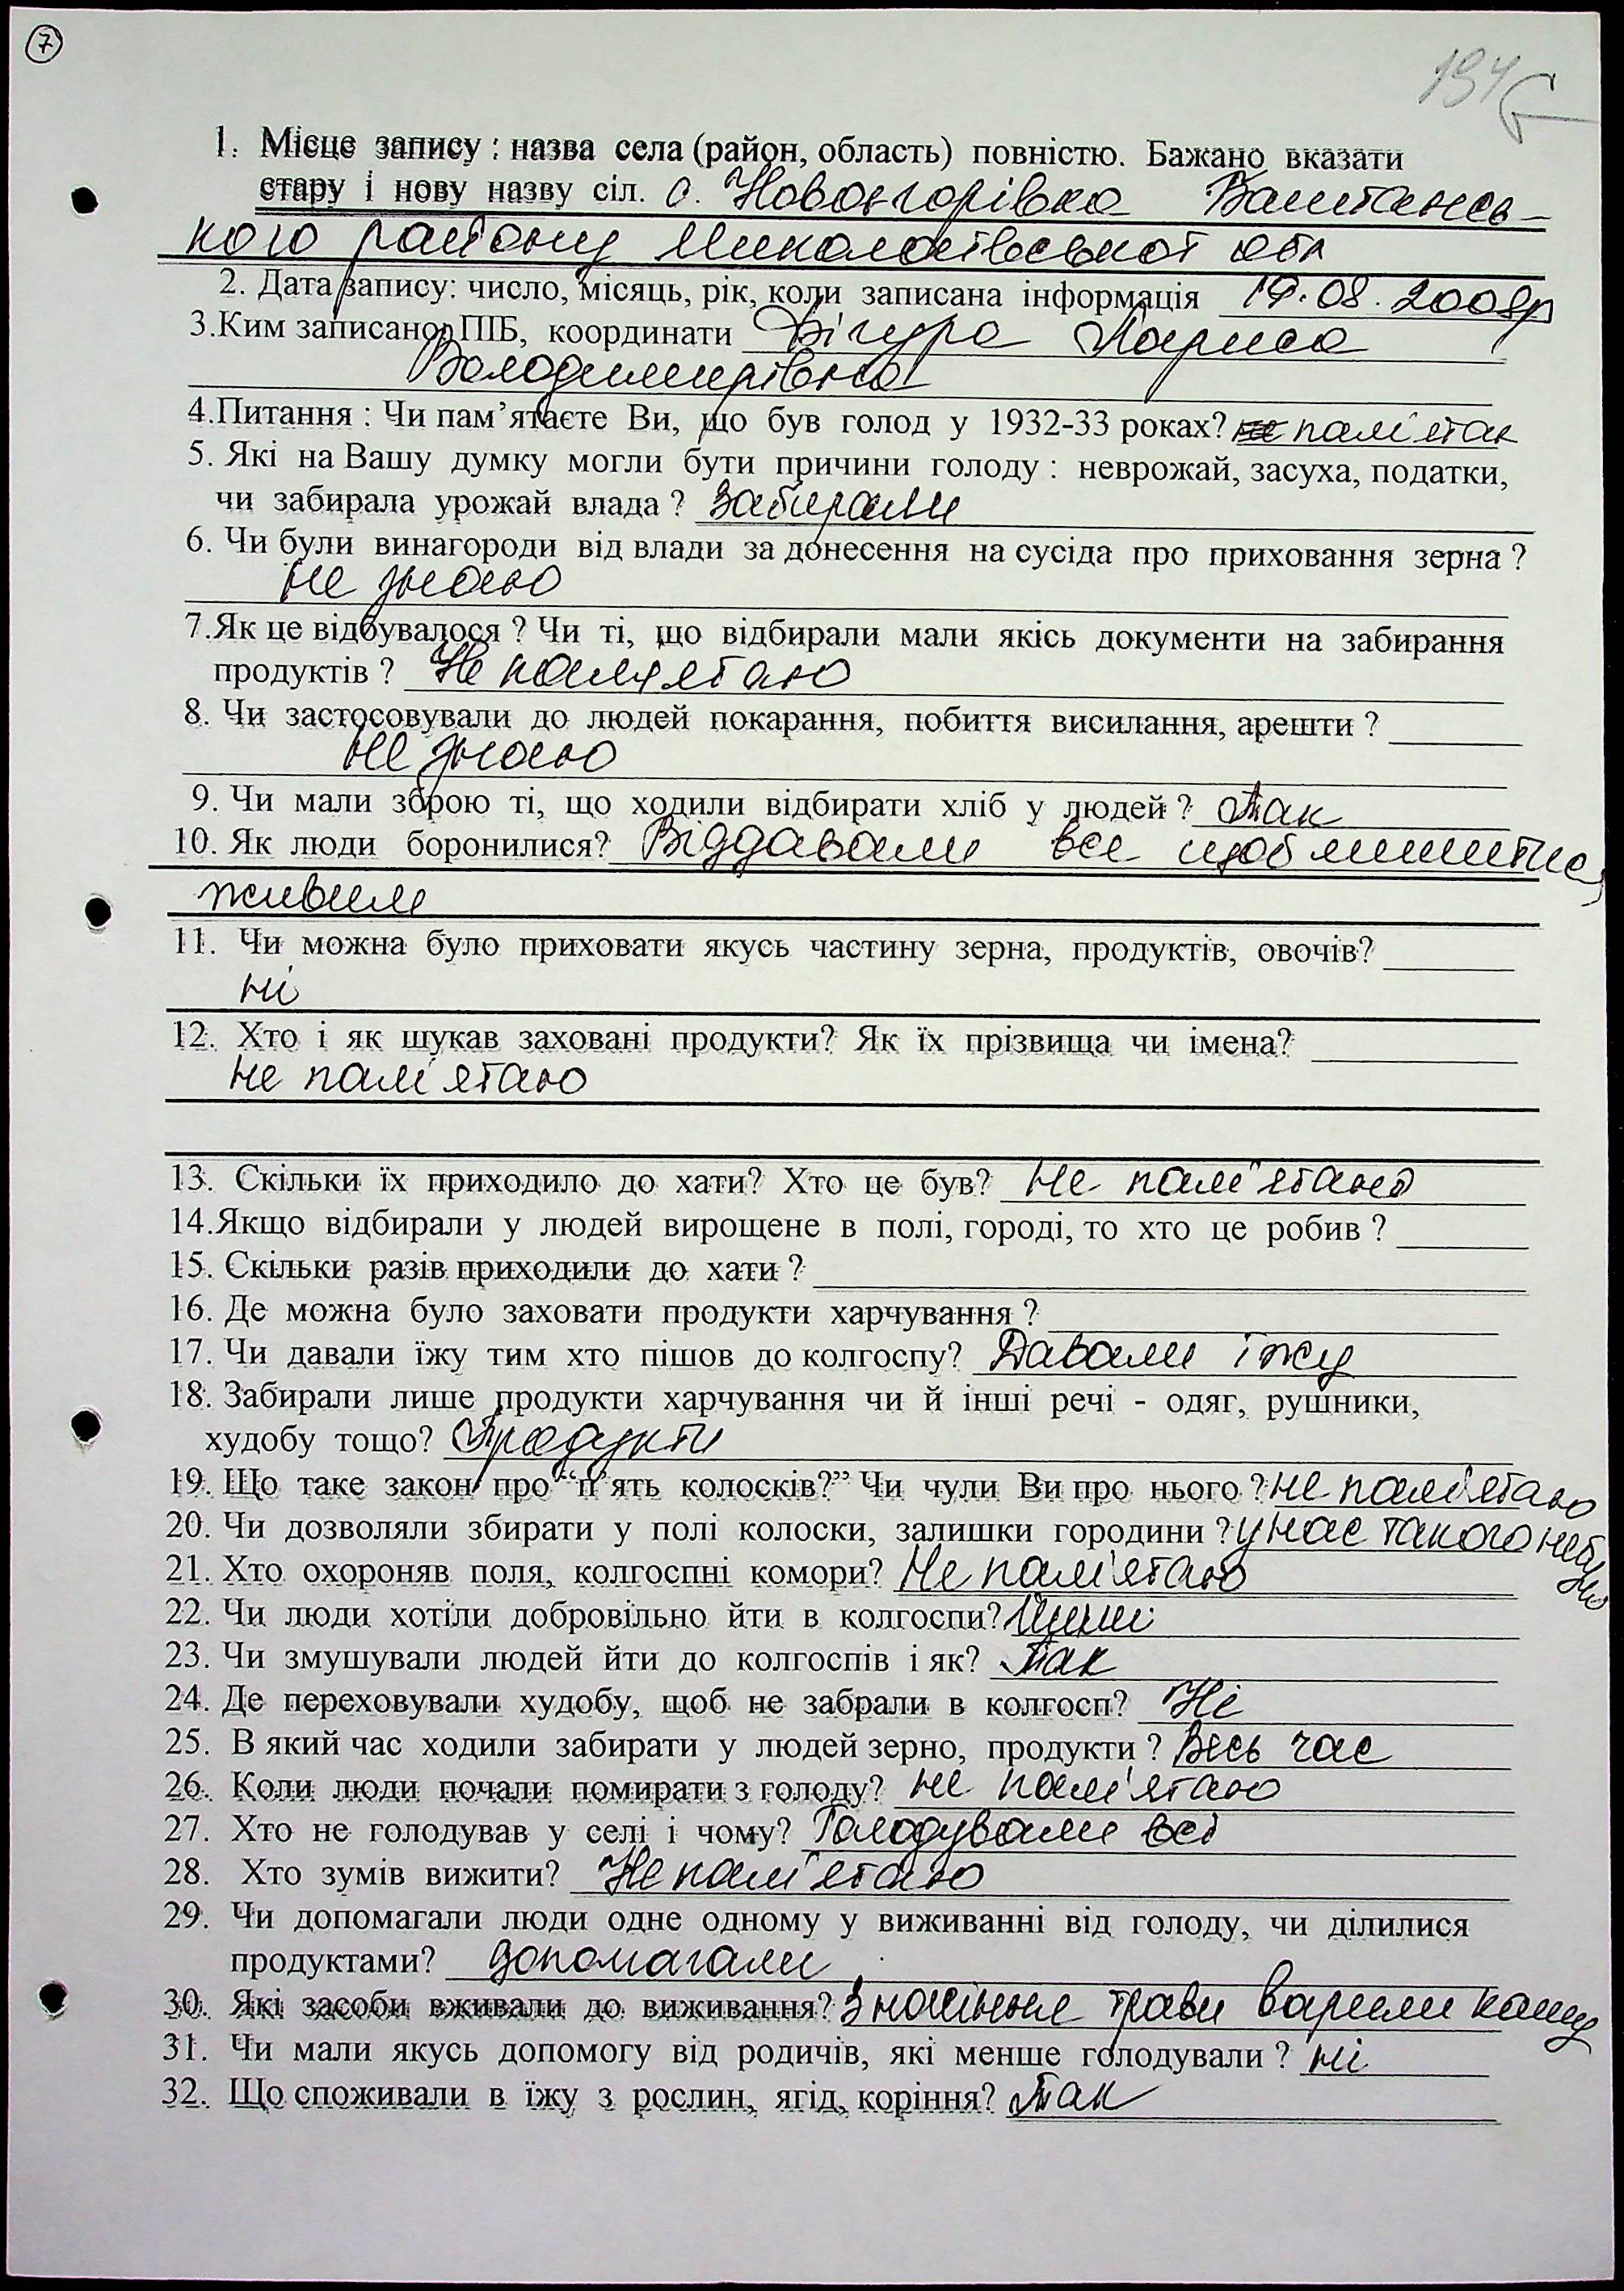 7
194
1. Місце запису : назва села (район, область) повністю. Бажано вказати
стару і нову назву сіл. с. Новоєгорівка Баштансь-
кого району Миколаївської обл
2. Дата запису: число, місяць, рік, коли записана інформація 19.08.2008р
3.Ким записано: ПІБ, координати Бігура Лариса
Володимирівна
4.Питання : Чи пам’ятаєте Ви, що був голод у 1932-33 роках? не пам'ятаю
5. Які на Вашу думку могли бути причини голоду : неврожай, засуха, податки,
чи забирала урожай влада ? Забирали
6. Чи були винагороди від влади за донесення на сусіда про приховання зерна ?
не знаю
7.Як це відбувалося ? Чи ті, що відбирали мали якісь документи на забирання
продуктів ? Не памятаю
8. Чи застосовували до людей покарання, побиття висилання, арешти ?
не знаю
9. Чи мали зброю ті, що ходили відбирати хліб у людей ? Так
10. Як люди боронилися? Віддавали все щоб лишитися
живими
11. Чи можна було приховати якусь частину зерна, продуктів, овочів?
ні
12. Хто і як шукав заховані продукти? Як їх прізвища чи імена?
не пам'ятаю
13. Скільки їх приходило до хати? Хто це був? Не пам'ятаю
14.Якщо відбирали у людей вирощене в полі, городі, то хто це робив ?
15. Скільки разів приходили до хати ?
16. Де можна було заховати продукти харчування ?
17. Чи давали їжу тим хто пішов до колгоспу? Давали їжу
18. Забирали лише продукти харчування чи й інші речі - одяг, рушники,
худобу тощо? Продукти
19. Що таке закон про “п’ять колосків?” Чи чули Ви про нього ? не пам'ятаю
20. Чи дозволяли збирати у полі колоски, залишки городини ? у нас такого не було
21. Хто охороняв поля, колгоспні комори? Не пам'ятаю
22. Чи люди хотіли добровільно йти в колгоспи? Йшли
23. Чи змушували людей йти до колгоспів і як? Так
24. Де переховували худобу, щоб не забрали в колгосп? Ні
25. В який час ходили забирати у людей зерно, продукти ? Весь час
26. Коли люди почали помирати з голоду? не пам'ятаю
27. Хто не голодував у селі і чому? Голодували всі
28. Хто зумів вижити? Не пам'ятаю
29. Чи допомагали люди одне одному у виживанні від голоду, чи ділилися
продуктами? допомагали
30. Які засоби вживали до виживання? З насіння трави варили кашу
31. Чи мали якусь допомогу від родичів, які менше голодували ? ні
32. Що споживали в їжу з рослин, ягід, коріння? Так